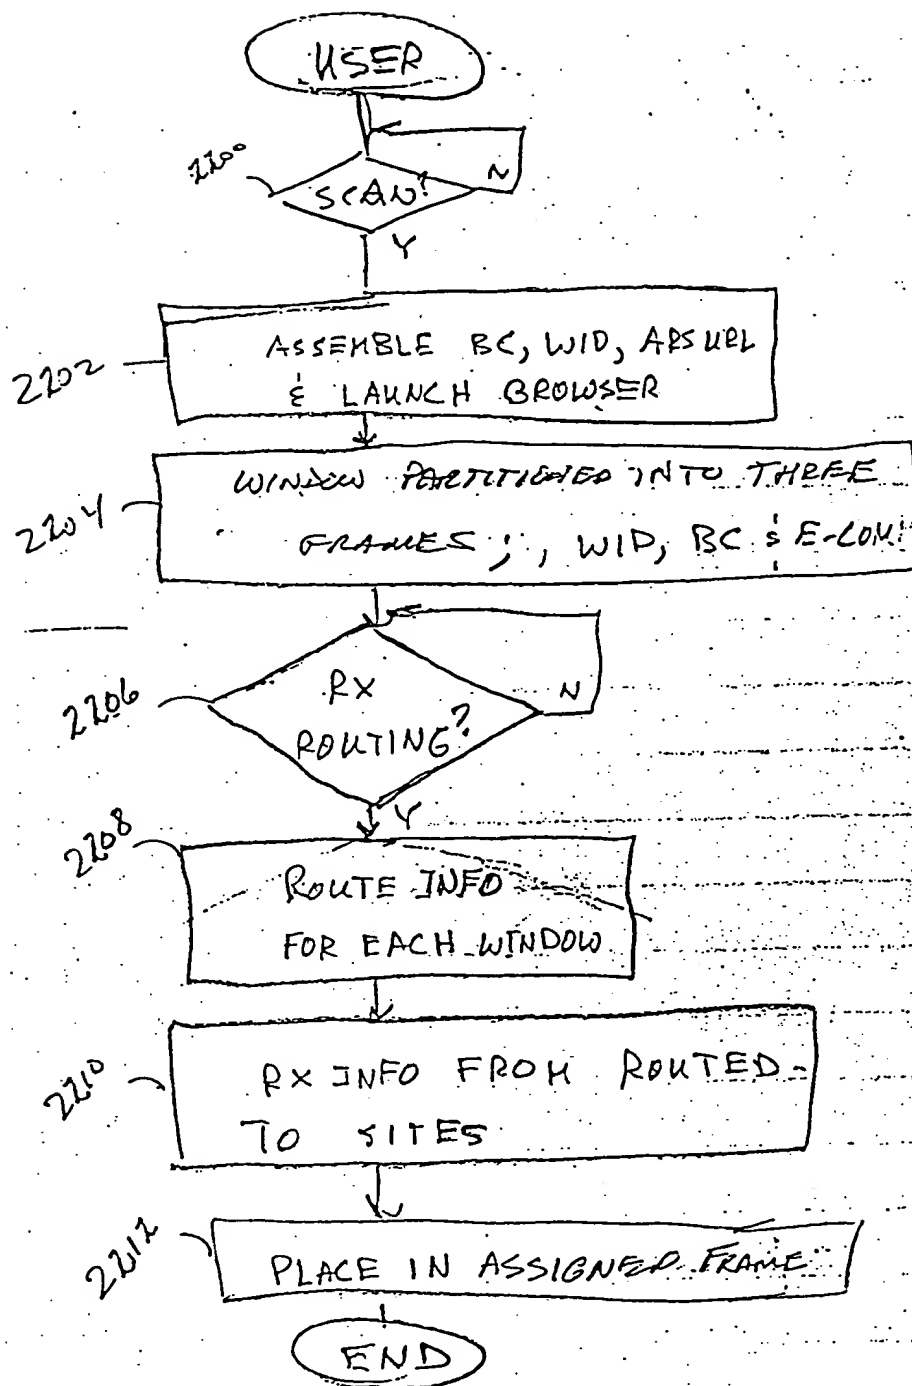 USER
2200
SCAN?
N
Y
2202
ASSEMBLE BC, WID, ARS URL
& LAUNCH BROWSER
2204
WINDOW PARTITIONED INTO THREE
FRAMES ; , WID, BC & E-COM
2206
RX
ROUTING?
N
Y
2208
ROUTE INFO
FOR EACH WINDOW
2210
RX INFO FROM ROUTED -
TO SITES
2212
PLACE IN ASSIGNED FRAME
END